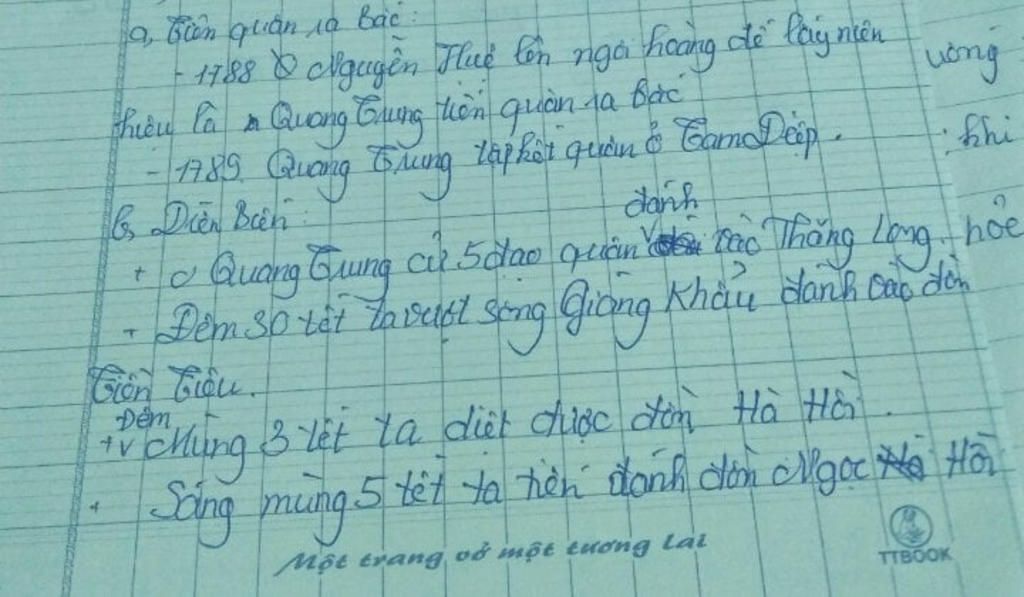 a, Tiến quân ra Bắc:
- 1788 Nguyễn Huệ lên ngôi hoàng đế lấy niên
hiệu là Quang Trung tiến quân ra Bắc
- 1789 Quang Trung tập kết quân ở Tam Điệp.
b, Diễn Biến:
+ Quang Trung cử 5 đạo quân đánh vào Thăng Long.
+ Đêm 30 tết ta vượt sông Giàng Khẩu đánh các đồn
Tiền Tiêu.
+ Đêm mùng 3 tết ta diệt được đồn Hà Hồi.
+ Sáng mùng 5 tết ta tiến đánh đồn Ngọc Hồi
uông
: khi
hỏe
Một trang vở một tương lai
TTBOOK